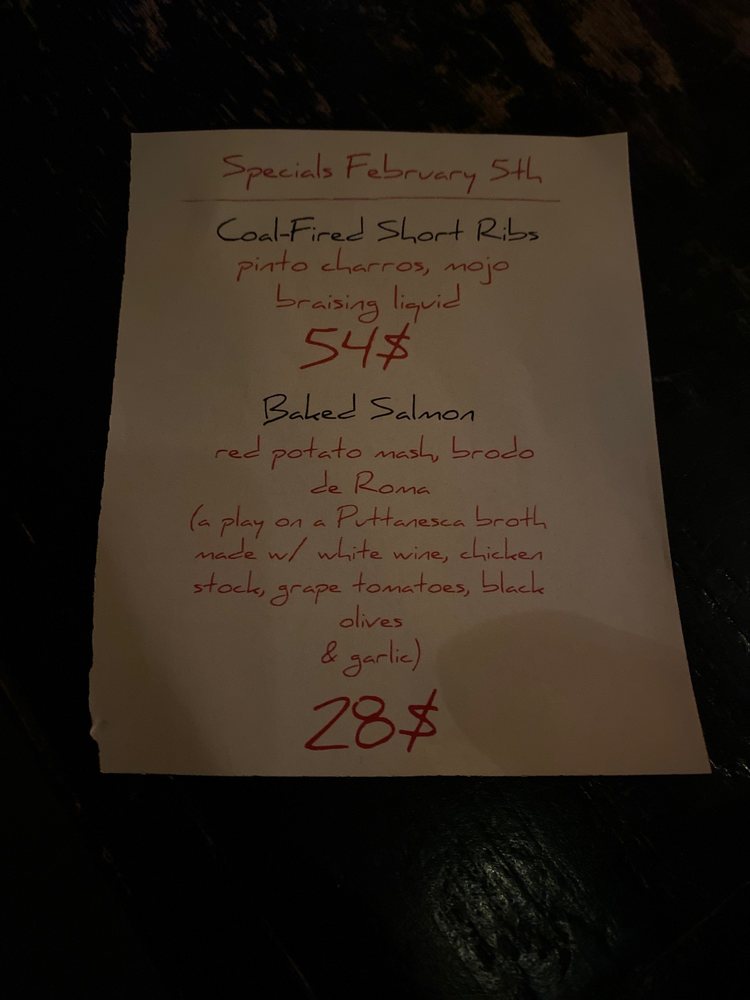 Specials February 5th
Coal-Fired Short Ribs
pinto charros, mojo
braising liquid
54$
Baked Salmon
red potato mash, brodo
de Roma
(a play on a Puttanesca broth
made w/ white wine, chicken
stock, grape tomatoes, black
olives
& garlic)
28$